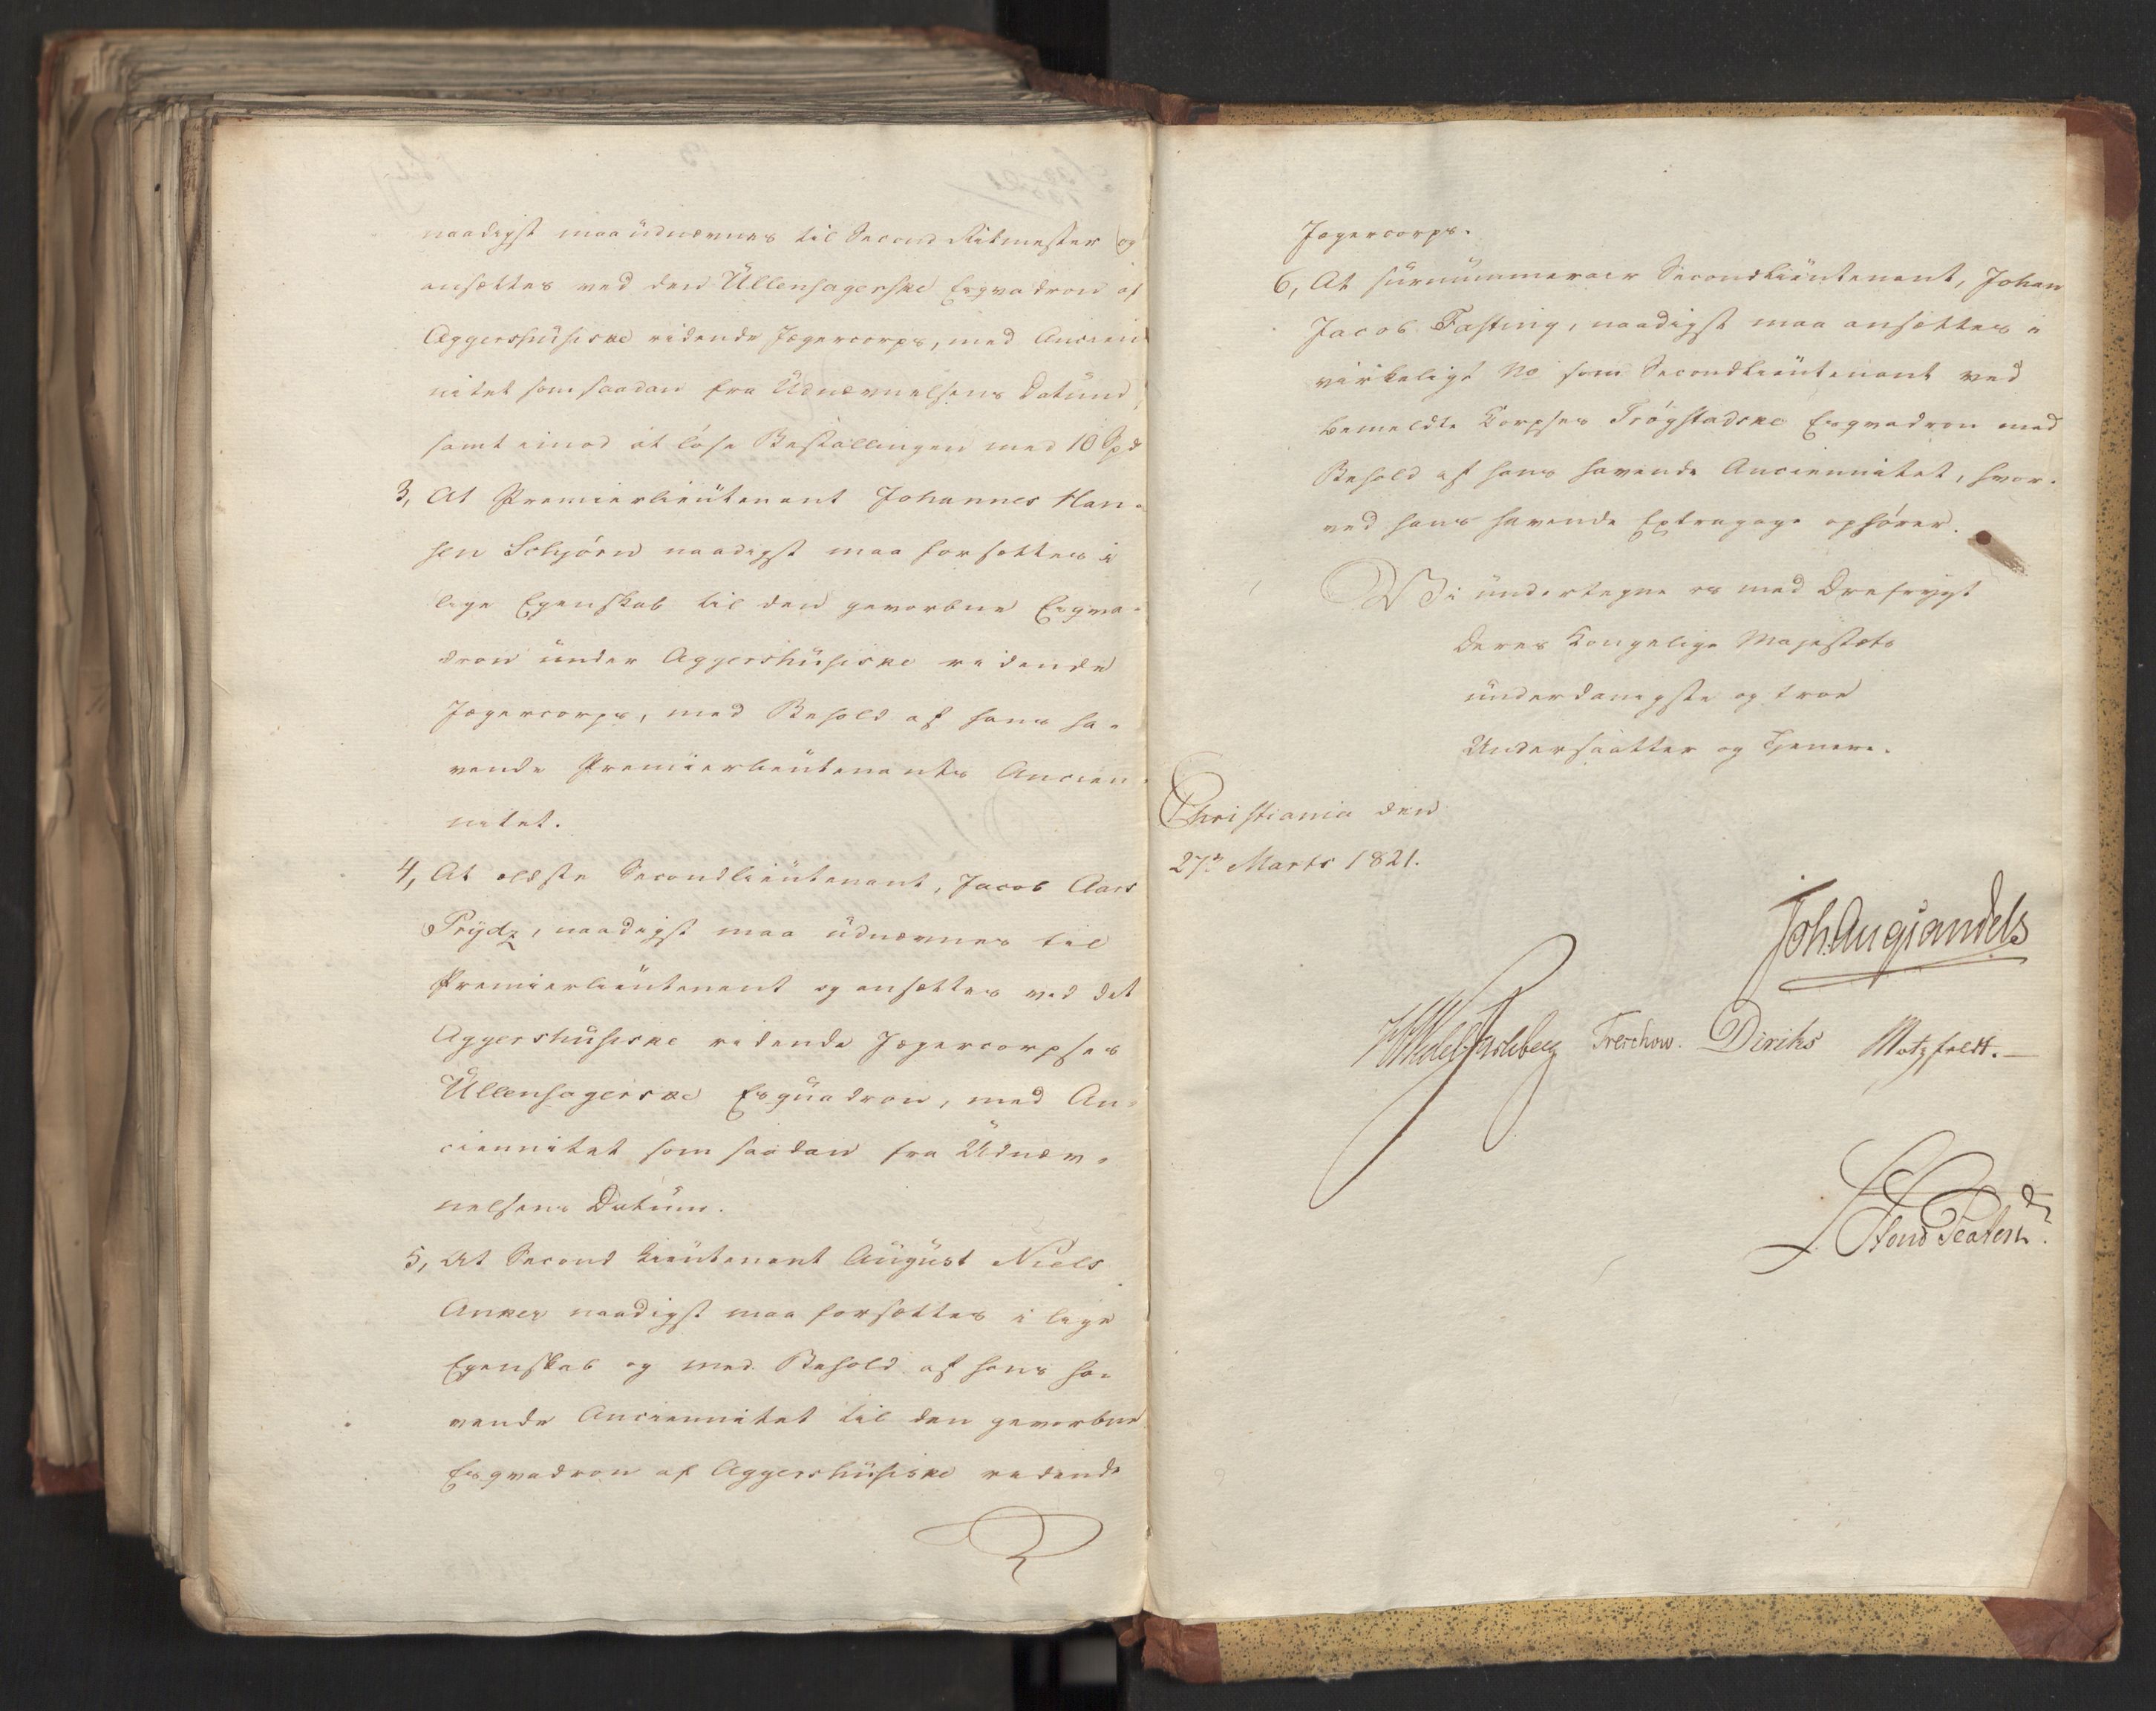 naadigst maa udnævnes til Second Ritmester og
ansættes ved den Ullensagerske Esqvadron af
Aggershusiske ridende Jægercorps, med Ancien
nitet som saadan fra Udnævnelsens Datum,
samt imod at løse Bestallingen med 10 Spd
3, At Premierlieutenant Johannes Han-
sen Schjørn naadigst maa forsættes i
lige Egenskab til den gevorbne Esqva-
dron under Aggershusiske ridende
Jægercorps, med Behold af hans ha-
vende Premierlieutenants Ancien-
nitet.
4, At ældste Secondlieutenant, Jacob Aars
Prydz, naadigst maa udnævnes til
Premierlieutenant og ansættes ved det
Aggershusiske ridende Jægercorpses
Ullensagerske Esquadron, med An-
ciennitet som saadan fra Udnæv-
nelsens Datum.
5, At Second Lieutenant August Niels
Anker naadigst maa forsættes i lige
Egenskab og med Behold af hans ha-
vende Anciennitet til den gevorbne
Esqvadron af Aggershusiske ridende
Jægercorps.
6, At surnummerair Secondlieutenant, Johan
Jacob Fasting, naadigst maa ansættes i
virkeligt No som Secondlieutenant ved
bemeldte Corpses Trøgstadske Esqvadron med
Behold af hans havende Anciennitet, hvor-
ved hans havende Extragage ophører.
Vi undertegne os med Ærefrygt
Deres Kongelige Majestæts
underdanigste og troe
Undersaatter og Tjenere.
Christiania den
27de Marts 1821.
Joh. Aug. Sandels
Treschow. Diriks Motzfeldt.